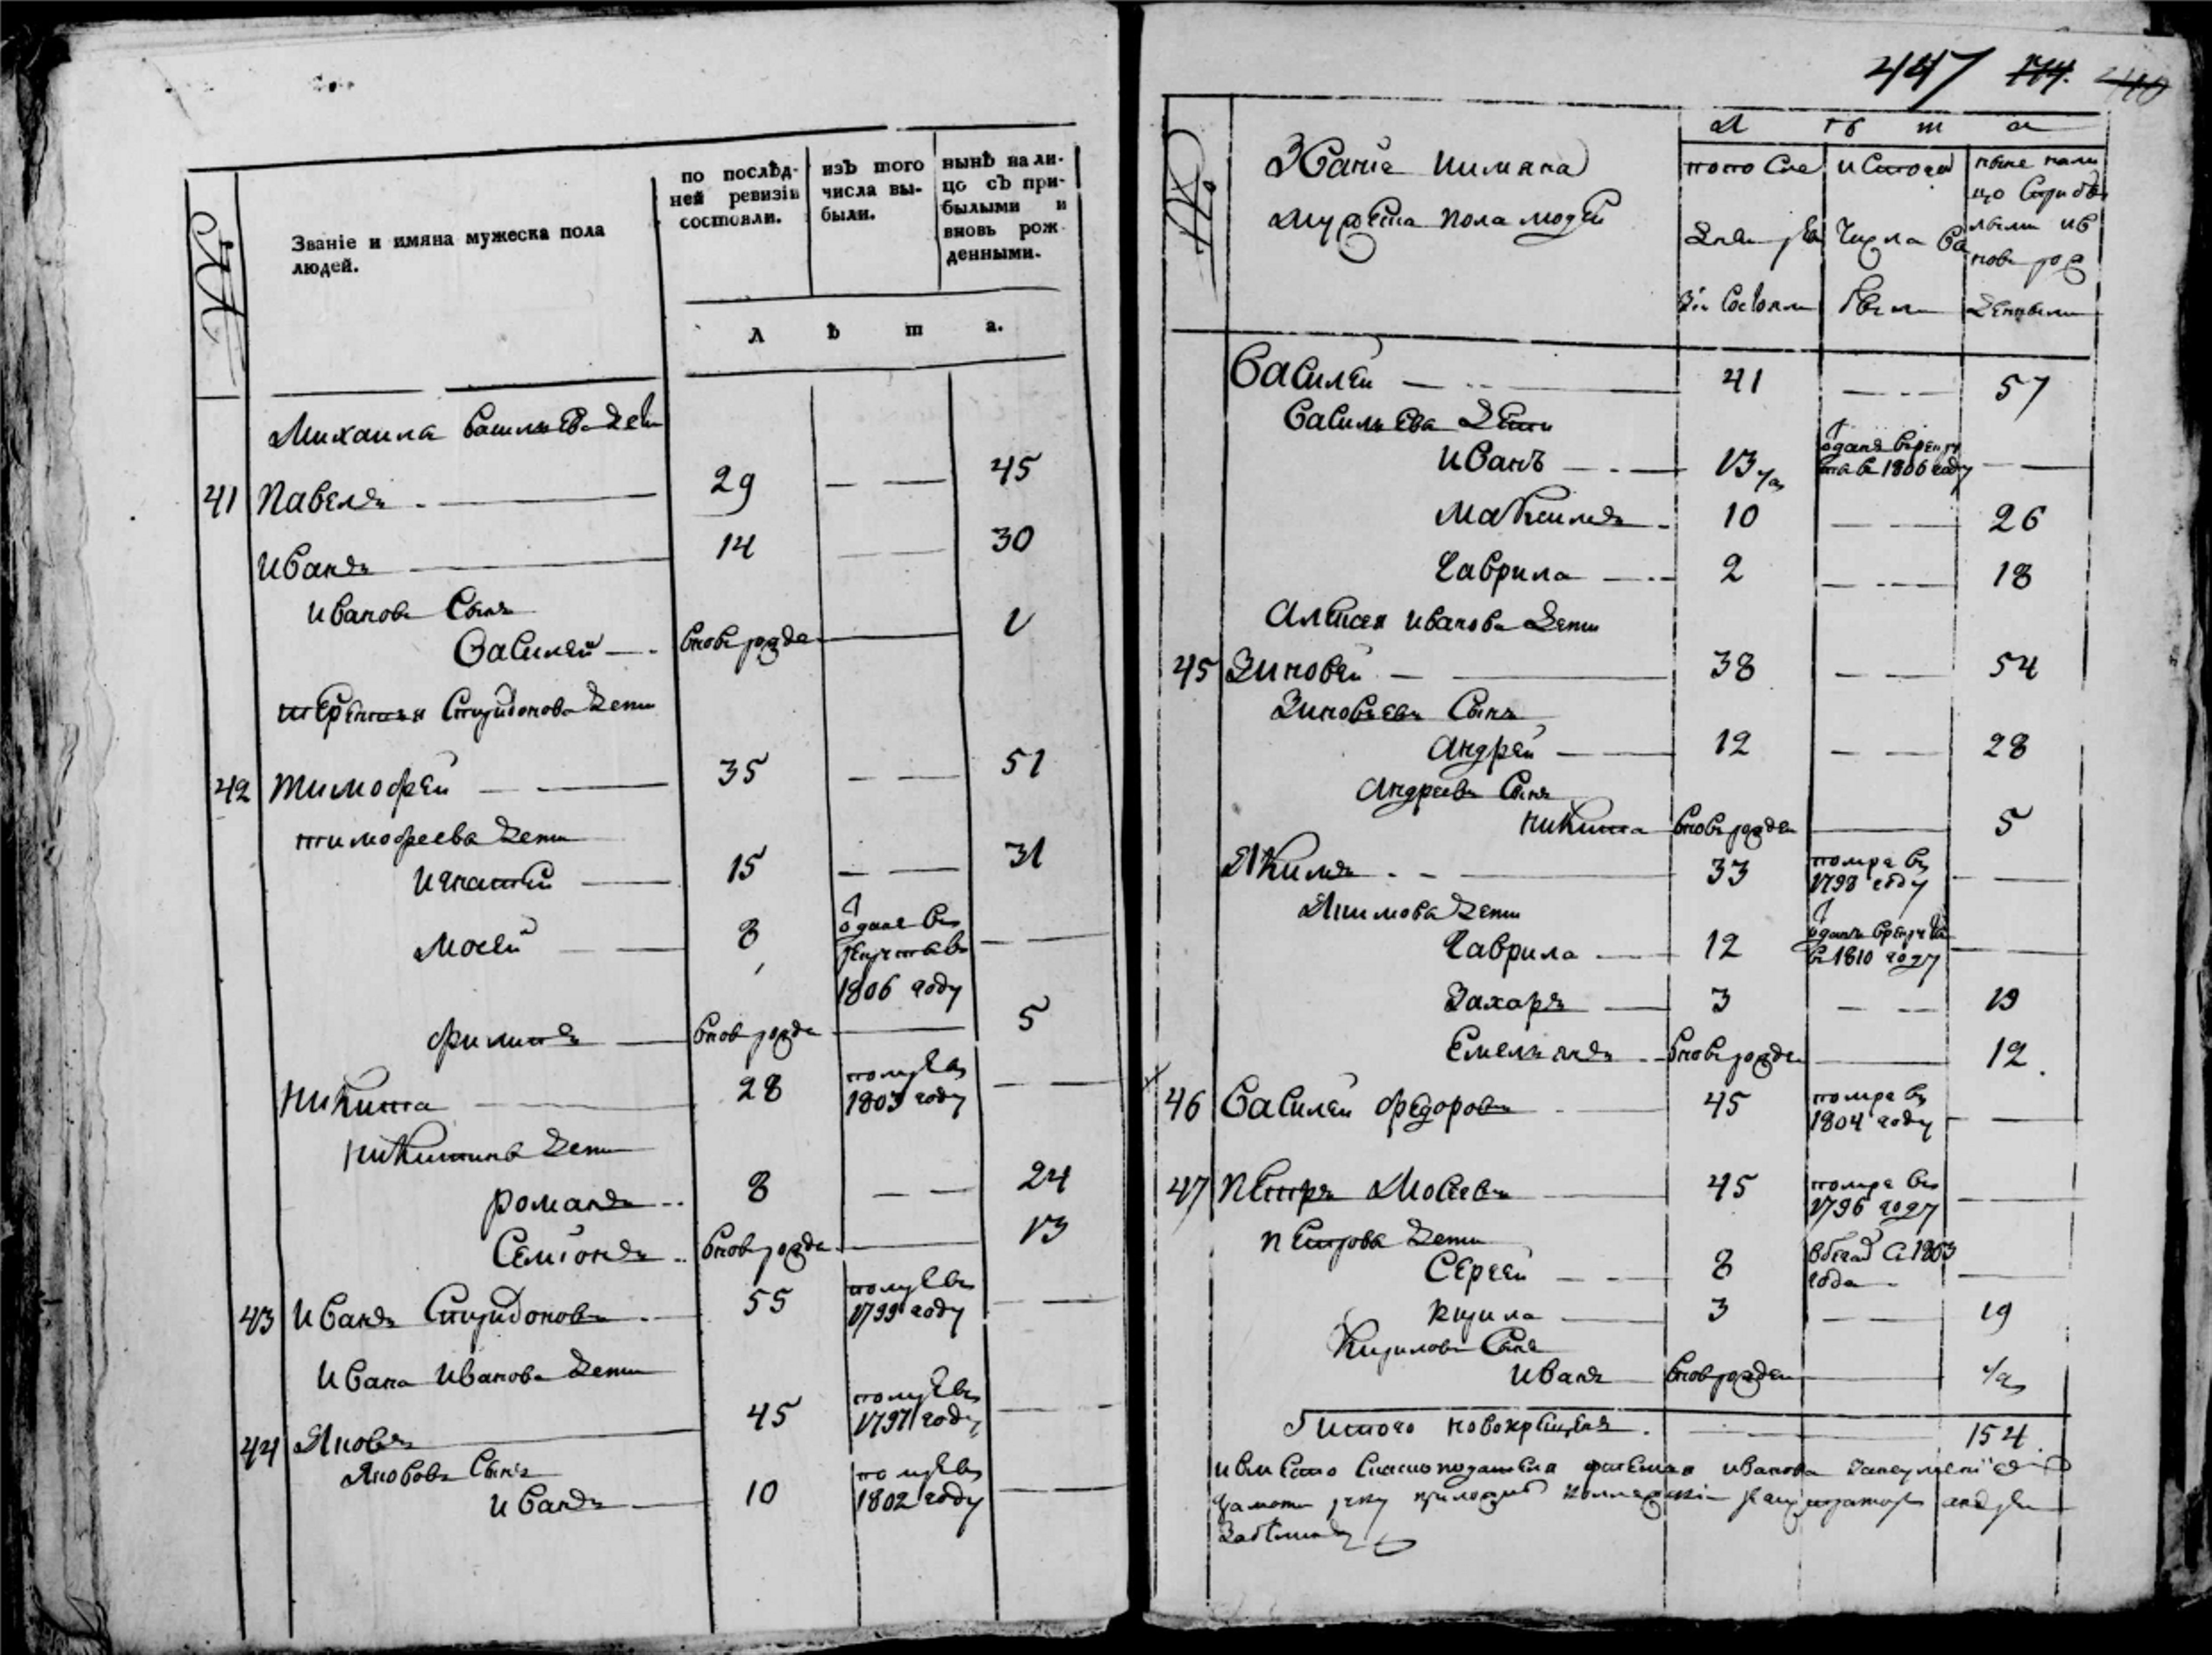 №
Званіе и имяна мужеска пола
людей.
по послѣд-
ней ревизіи
состояли.
изъ того
числа вы-
были.
нынѣ на ли-
цо съ при-
былыми и
вновь рож-
денными.
л ѣ т а.
Михаила Васильева дети
41 Павелъ 29 45
Иванъ 14 30
Ивановъ Сынъ
Василей вновь рожде 1
Терентья Спиридонова дети
42 Тимофей 35 51
Тимофеева дети
Игнатей 15 31
Мосей 8
одапъ въ
рекрута въ
1806 году
Филипъ вновь рожде 5
Никита 28
помре въ
1803 году
Никитина дети
Романъ 8 24
Семионъ вновь рожде 13
43 Иванъ Спиридоновъ 55
помре въ
1799 году
Ивана Иванова дети
44 Яковъ 45
помре въ
1797 году
Яковов Сынъ
Иванъ 10
помре въ
1802 году
447 174.
№
Званіе иимяна
Мужеска пола людей
Л ѣ т а
попо сле
дней ре
зіи состояли
истого
числа вы
были
ныне нали
цо сприбы
лыми ив
новь рож
денными
Василей 41 57
Васильева дети
Иванъ 13
1806 году
10 26
Гаврила 2 18
Алексея Иванова дети
45 Зиновей 38 54
Зиновьевъ Сынъ
Андрей 12 28
Андреевъ Сынъ
Никита вновь рожден 5
Якимъ 33
помре въ
1798 году
Якимова дети
Гаврила 12
в 1810 году
Захаръ 3 19
Емельянъ вновь рожден 12
46 Василей Федоровъ 45
помре въ
1804 году
47 Петръ Мосеевъ 45
помре въ
1796 году
Петрова дети
Сергей 8
вбегах с 1803
года
Кирила 3 19
Кириловъ Сынъ
Иванъ вновь рожден
Итого новокрещенъ 154.
Иванова
грамоте руку приложил